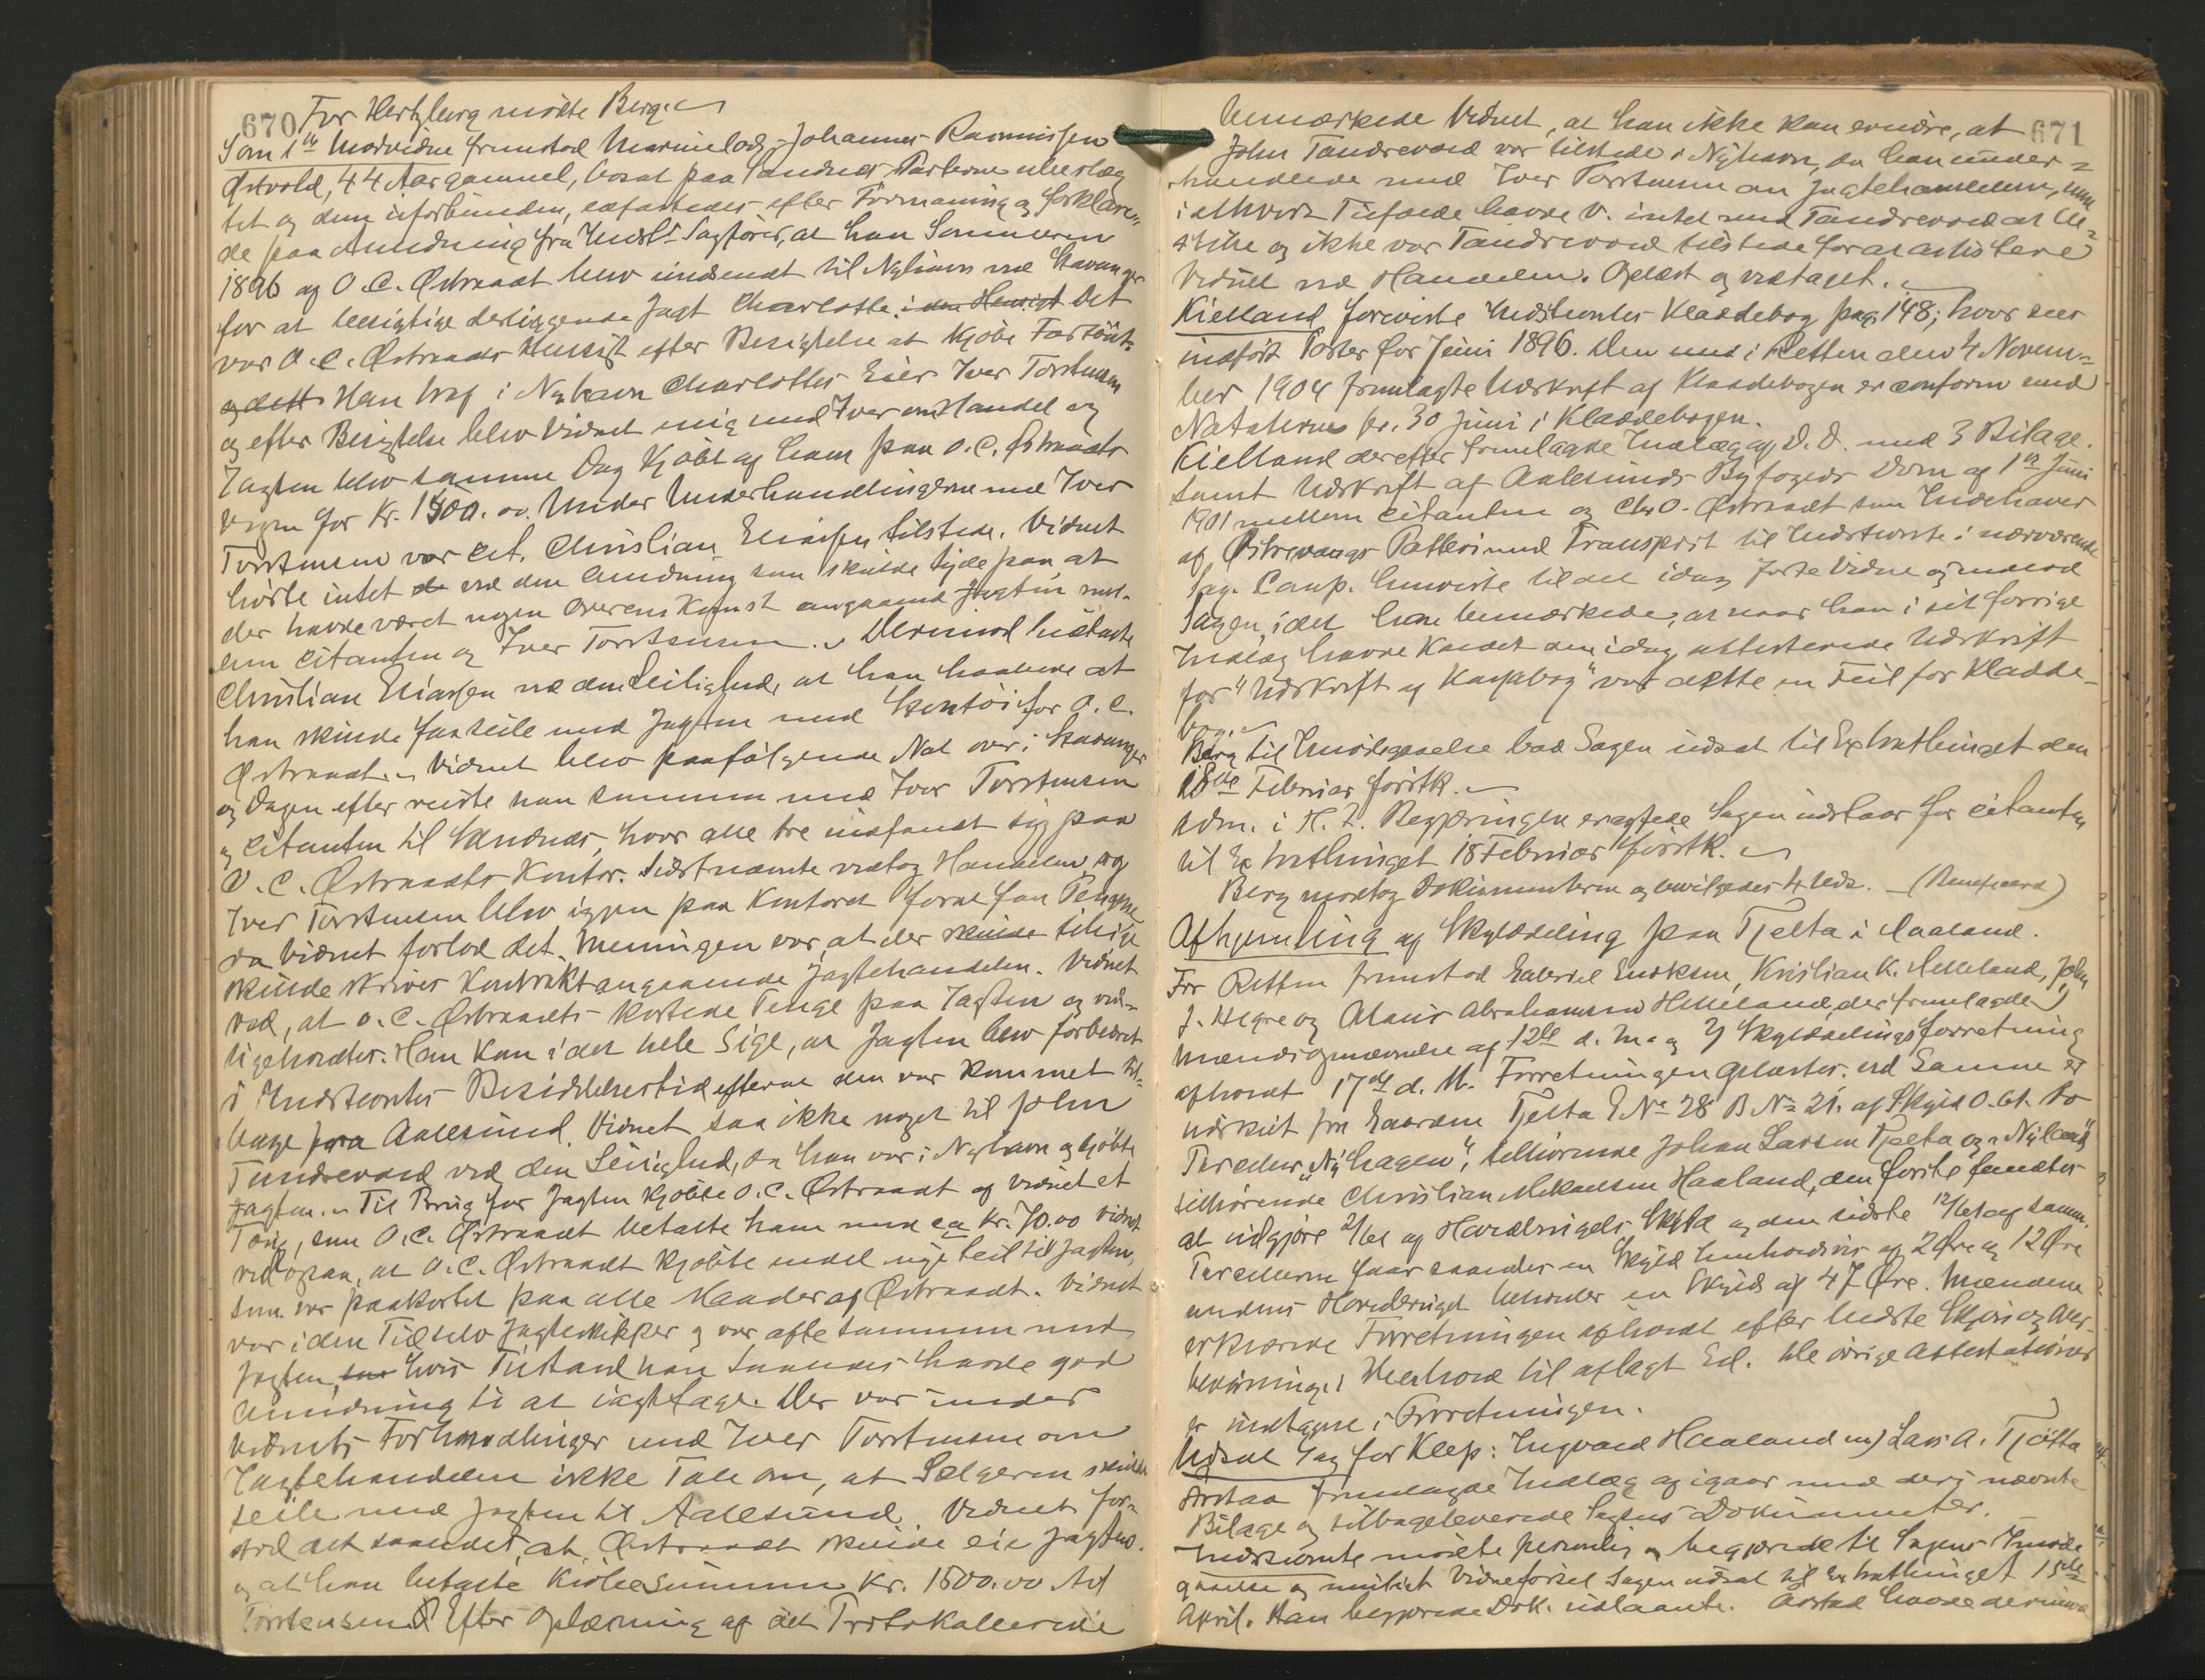 670 For Hertzberg mödte Berg.
Som 1ste Modvidne fremstod Marinelods Johannes Rasmussen
Østvold, 44 Aar gammel, bosat paa Sandnes Parterne ubeslæg
tet og dem uforbunden, edfæstedes efter Formaning og forklare-
de paa Anledning fra Indst's Sagfører, at han Sommeren
1896 af O. C. Østraadt blev indsendt til Nyhavn ved Stavanger
for at besigtige derliggende Jagt Charlotte i den Hensigt Det
var O. C. Østraadts Hensigt efter Besigtelse at kjøbe Fartöiet
og dett Han traf i Nyhavn Charlottes Eier Iver Torstensen
og efter Besigtelse blev Vidnet enig med Iver om Handel og
Jagten blev samme Dag kjöbt af ham paa O. C. Østraadts
Vegne for Kr. 1500.00. Under Underhandlingerne med Iver
Torstensen var Cit. Christian Eliassen tilstede. Vidnet
hörte intet de ved den Anledning som skulde tyde paa at
der havde været nogen Overenskomst angaaende Jagten mel-
lem Citanten og Iver Torstensen. Derimod
Christian Eliassen ved den Leilighed, at han haabede at
han skulde faa seile med Jagten med for O. C.
Østraadt. Vidnet blev paafölgende Nat over i Stavanger
og Dagen efter reiste han sammen med Iver Torstensen
og Citanten til Sandnes, hvor alle tre indfandt sig paa
O. C. Østraadts Kontor. Sidstnævnte vedtog Handelen og
Iver Torstensen blev igjen paa Kontoret forat faa Pengene
da Vidnet forlod det. Meningen var, at der skulde tillige
skulde skrives Kontrakt angaaende Jagtehandelen. Vidnet
ved, at O. C. Østraadt kostede Penge paa Jagten og ved-
ligeholdt. Han kan i det hele sige, at Jagten blev forbedret
i Indstevntes Besiddelsestid efterat den var kommet til-
bage fra Aalesund. Vidnet saa ikke noget til John
Tandrevold ved den Leilighed, da han var i Nyhavn og kjöbte
Jagten. Til Brug for Jagten kjöbte O. C. Østraadt af vidnet et
Toug, som O. C. Østraadt betalte ham med ca Kr. 70.00 Vidnet
ved ogsaa, at O. C. Østraadt kjöbte endel nye Seil til Jagten,
som var paakostet paa alle Maader af Østraadt. Vidnet
var i den Tid selv Jagteskipper og var ofte sammen med
Jagten, som hvis Tilstand han saaledes havde god
Anledning til at iagttage. Der var under
Vidnets Forhandlinger med Iver Torstensen om
Jagtehandelen ikke Tale om, at Sælgeren skulde
seile med Jagten til Aalesund. Vidnet for-
stod det saaledes, at Østraadt skulde eie Jagten
og at han betalte Kjöbesummen Kr. 1500.00 til
Torstensen. Efter Oplæsning af det Protokollerede
671
bemærkede Vidnet, at han ikke kan erindre, at
John Tandrevold var tilstede i Nyhavn, da han under-
handlede med Iver Torstensen om Jagtehandelen, men
i ethvert Tilfælde havde V. intet med Tandrevold at be-
stille og ikke var Tandrevold tilstede for at assistere
Vidnet ved Handelen. Oplæst og vedtaget.
Kielland foreviste Indstevntes Kladdebog pag. 148, hvor sees
indfört Poster for Juni 1896. Den med i Retten den 4 Novem-
ber 1904 fremlagte Udskrift af Kladdebogen er conform med
Notaterne pr. 30 Juni i Kladdebogen.
Kielland derefter fremlagde Indlæg af D. D. med 3 Bilage.
samt Udskrift af Aalesunds Byfogeds Dom af 1ste Juni
1901 mellem Citanten og Chr O. Østraadt som Indehaver
af Østrevaags Potteri med Transport til Indstevnte i nærværende
Sag. Comp. henviste til det idag förte Vidne og indlod
Sagen, idet han bemærkede, at naar han i sit forrige
Indlæg havde kaldt den idag attesterede Udskrift
for "Udskrift af Kassabog" var dette en Feil for Kladde-
bog.
Berg til Imödegaaelse bad Sagen udsat til Extrathinget den
18de Februar förstk.
Adm. i H. t. Begjæringen eragtede Sagen udstaar for Citanten
til Extrathinget 18 Februar förstk.
Berg modtog Dokumenterne og bevilgedes 4 Uds. (Beneficeret)
Afhjemling af Skylddeling paa Tjelta i Haaland.
For Retten fremstod Gabriel Endresen, Kristian K. Helleland, John
J. Hegre og Mauris Abrahamsen Helleland, der fremlagde
Mændsopnævnelse af 12te d. M. og 2) Skylddelingsforretning
afholdt 17de d. M. Forretningen oplæstes. ved Samme er
udskilt fra Gaarden Tjelta G No 28 B No 21. af Skyld 0.61. To
Parceller, "Ny hagen", tilhørende Johan Larsen Tjelta og "Nyland"
tilhørende Christian Mikaelsen Haaland, den förste fandtes
at udgjöre 2/61 af Hovedbrugets Skyld og den sidste 12/61 af samme.
Parcellerne faar saaledes en Skyld henholdsvis af 2 Øre og 12 Øre
medens Hovedbruget beholder en Skyld af 47 Øre. Mændene
erklærede Forretningen afholdt efter bedste Skjön og Over-
bevisning i Henhold til aflagt Ed. De övrige Attestationer
er indtagne i Forretningen.
Udsat Sag for Klep: Ingvald Haaland m/ Lars A. Tjötta
Aarstad fremlagde Indlæg af igaar med deri nævnte
Bilage og tilbageleverede Sagens Dokumenter.
Indstevnte mödte personlig og begjærede til Sagens Imöde-
gaaelse og muligt Vidneförsel Sagen udsat til Extrathinget 15de
April. Han begjærede Dok. udlaante. Aarstad havde derimod